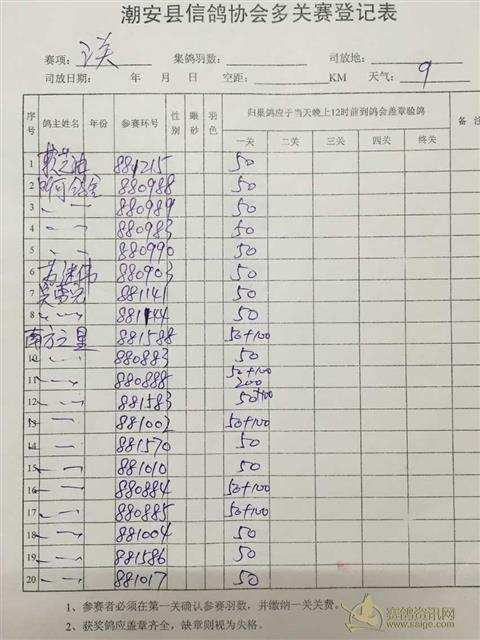 潮安县信鸽协会多关赛登记表
赛项: 集鸽羽数: 司放地:
司放日期: 年 月 日 空距: KM 天气: 9
序号 鸽主姓名 年份 参赛环号 性别 眼砂 羽色 归巢鸽应于当天晚上12时前到鸽会盖章验鸽 备注
一关 二关 三关 四关 终关
1 881215 50
2 880988 50
3 〃 〃 880989 50
4 〃 〃 880983 50
5 〃 〃 880990 50
6 880903 50
7 881141 50
8 〃 〃 881144 50
9 南方之星 881588 50+100
10 〃 〃 880883 50
11 〃 〃 880888 50+100 200
12 〃 〃 881583 50+100
13 〃 〃 881002 50+100
14 〃 〃 881570 50
15 〃 〃 881010 50
16 〃 〃 880884 50+100
17 〃 〃 880885 50+100
18 〃 〃 881004 50
19 〃 〃 881586 50
20 〃 〃 881017 50
1、参赛者必须在第一关确认参赛羽数，并缴纳一关关费。
2、获奖鸽应盖章齐全，缺章则视为失格。
赛鸽资讯网
www.saige.com